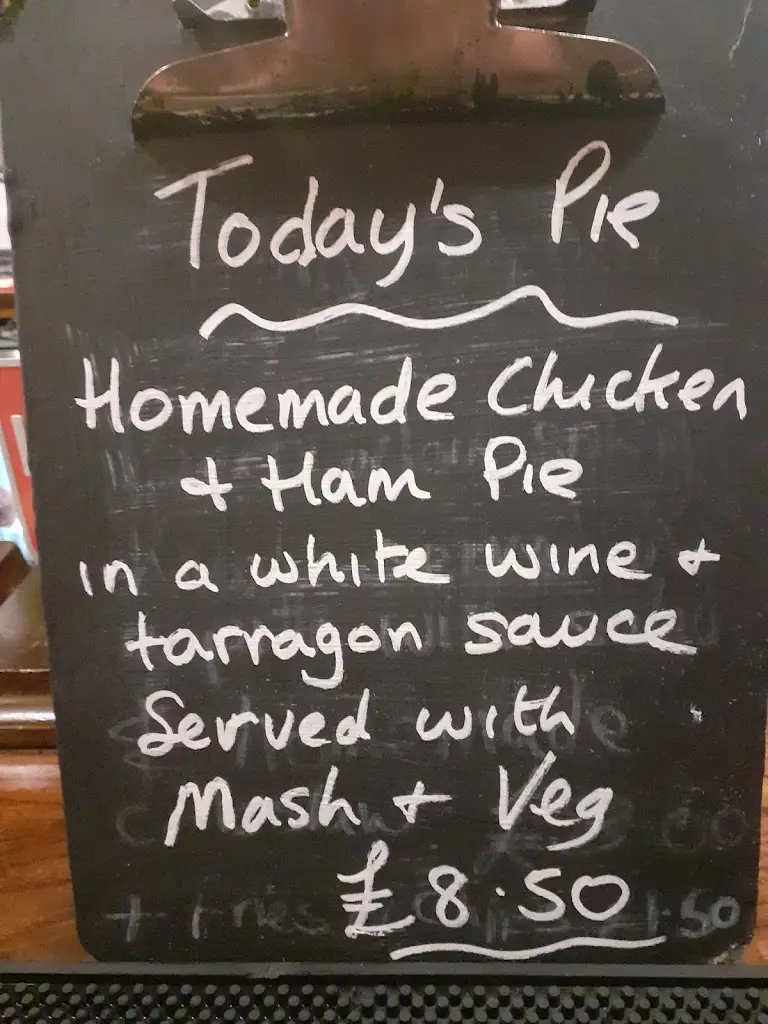 Today's Pie
Homemade Chicken
+ Ham Pie
in a white wine +
tarragon sauce
Served with
Mash + Veg
£8.50